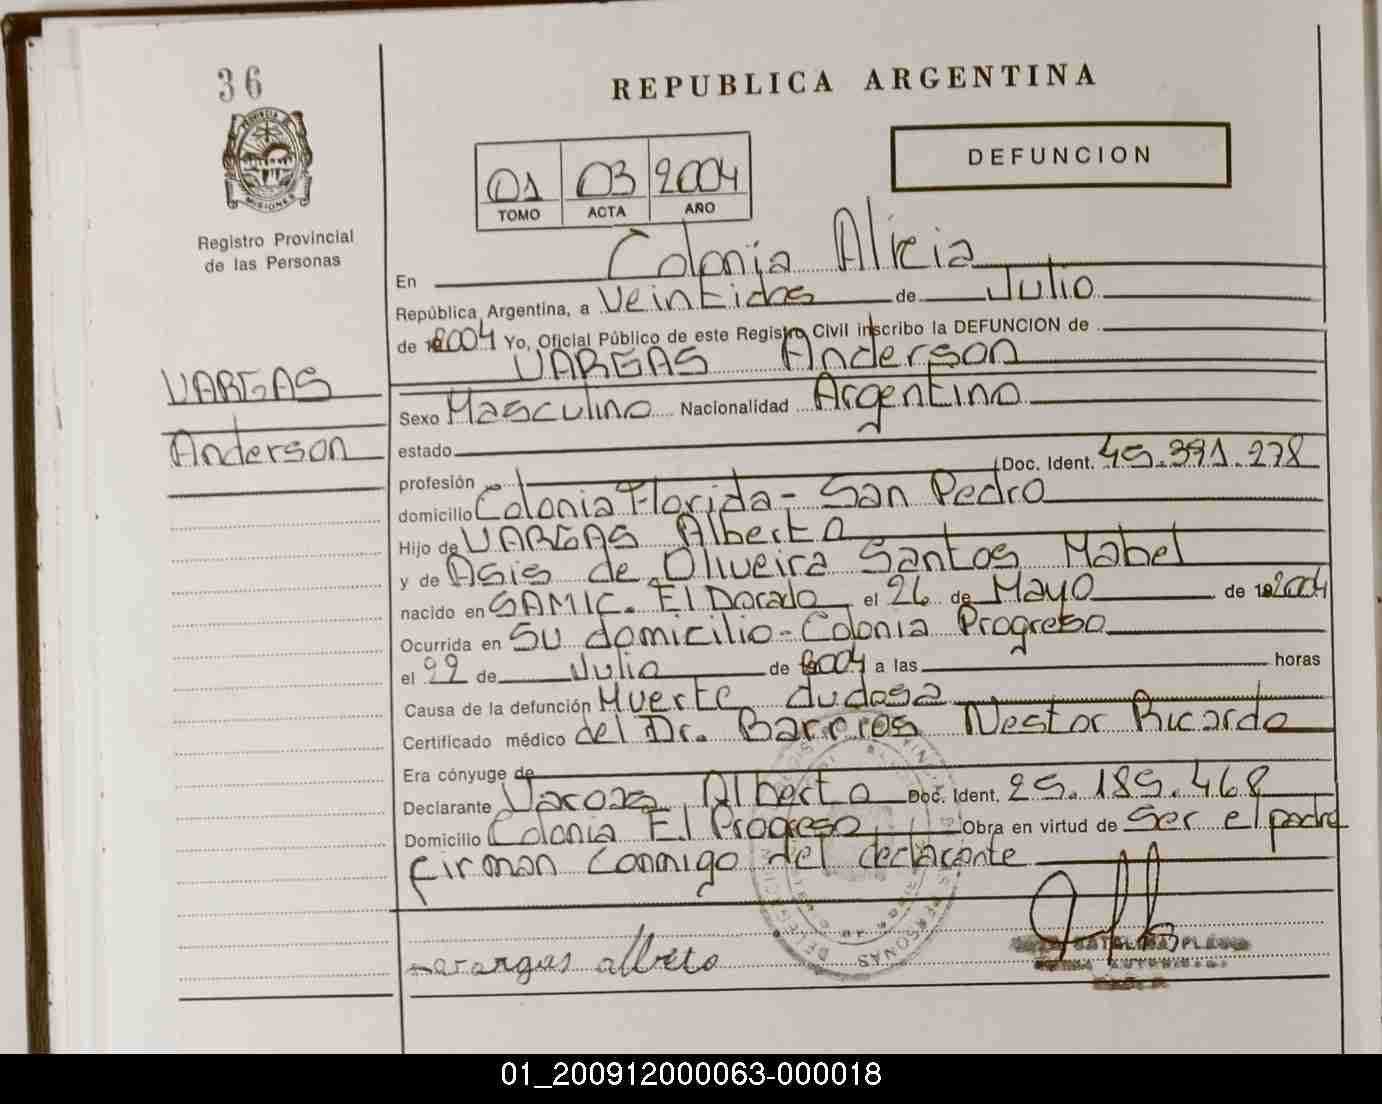 36
PROVINCIA DE
MISIONES
Registro Provincial
de las Personas
VARGAS
Anderson
REPUBLICA ARGENTINA
01 03 2004
TOMO ACTA AÑO
DEFUNCION
En Colonia Alicia
República Argentina, a Veintidos de Julio
de 2004 Yo, Oficial Público de este Registro Civil inscribo la DEFUNCION de
VARGAS Anderson
Sexo Masculino Nacionalidad Argentino
estado
profesión Doc. Ident. 45.391.278
domicilio Colonia Florida - San Pedro
Hijo de VARGAS Alberto
y de Asis de Oliveira Santos Mabel
nacido en SAMIC. El Dorado el 26 de Mayo de 2004
Ocurrida en Su domicilio - Colonia Progreso
el 22 de Julio de 2004 a las horas
Causa de la defunción Muerte dudosa
Certificado médico del Dr. Barreros Nestor Ricardo
Era cónyuge de
Declarante Vargas Alberto Doc. Ident. 25.185.468
Domicilio Colonia El Progreso Obra en virtud de Ser el padre
firman conmigo del declarante
PERSONAS
01_200912000063-000018